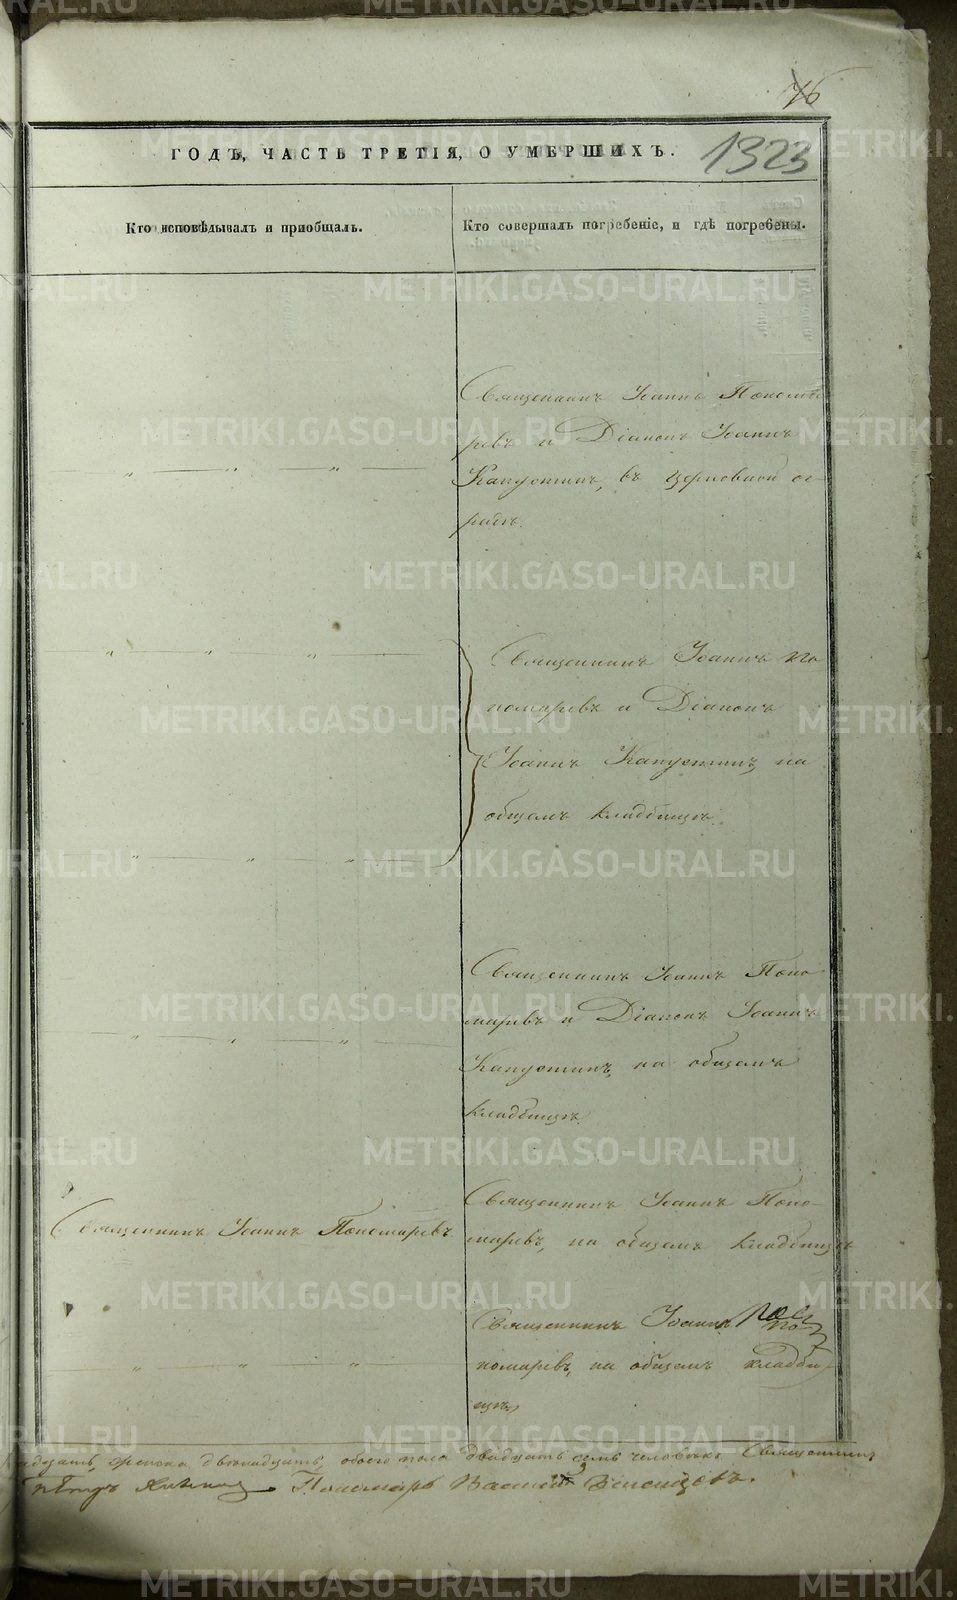 76
ГОДЪ, ЧАСТЬ ТРЕТІЯ, О УМЕРШИХЪ.
1323
Кто исповѣдывалъ и пріобщалъ.
Кто совершалъ погребеніе, и гдѣ погребены.
Священникъ Іоаннъ Понома
ревъ и Діаконъ Іоаннъ
Капустинъ, въ церковной ог
радѣ.
Священникъ Іоаннъ По
номаревъ и Діаконъ
Іоаннъ Капустинъ на
общемъ кладбищѣ.
Священникъ Іоаннъ Поно
маревъ и Діаконъ Іоаннъ
Капустинъ, на общемъ
кладбищѣ.
Священникъ Іоаннъ Пономаревъ
Священникъ Іоаннъ Поно-
маревъ, на общемъ кладбищѣ
Священникъ Іоаннъ По
номаревъ, на общемъ кладби
щѣ
женска двенадцать, обоего пола двадцать семь человѣкъ. Священникъ
Петръ Пономарь Василій
METRIKI.GASO-URAL.RU